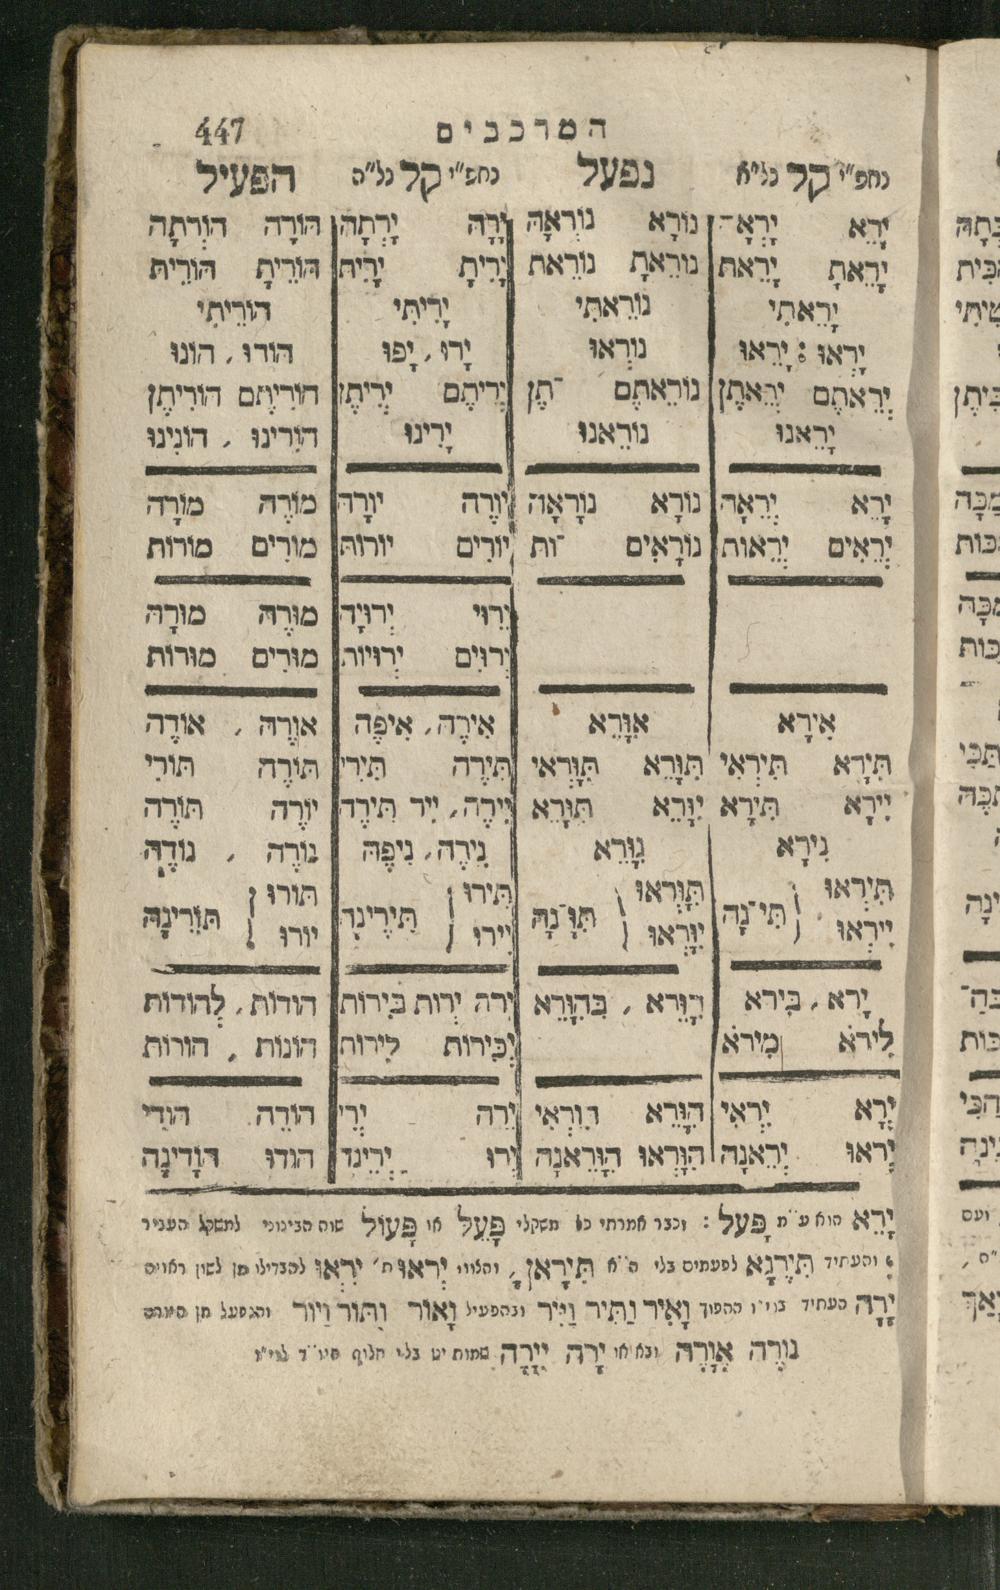 המרכבים 447
נחפ"י קל נל"א נפעל נחפ"י קל נל"ה הפעיל
יָרֵא יָרְאָ־ נוֹרָא נוֹרְאָה יָרָה יָרְתָה הוֹרָה הוֹרְתָה
יָרֵאתָ יָרֵאת נוֹרֵאתָ נוֹרֵאת יָרִיתָ יָרִית הוֹרֵיתָ הוֹרֵית
יָרֵאתִי נוֹרֵאתִי יָרִיתִי הוֹרֵיתִי
יָרְאוּ : יָרֵאוּ נוֹרְאוּ יָרוּ , יָפוּ הודוּ , הונוּ
יְרֵאתֶם יְרֵאתֶן נוֹרֵאתֶם ־תֶן יְרִיתֶם יְרִיתֶן הוֹרִיתֶם הוֹרִיתֶן
יָרֵאנוּ נוֹרֵאנוּ יָרִינוּ הוֹרִינוּ , הונִינוּ
יָרֵא יְרֵאָה נוֹרָא נוֹרָאָה יוֹרֶה יוֹרָה מוֹרֶה מוֹרָה
יְרֵאִים יְרֵאוֹת נוֹרָאִים ־וֹת יוֹרִים יורות מורִים מורות
יָרוּי יְרוּיָה מוּרֶה מוּרָה
יְרוּיִם יְרוּיוֹת מוּרִים מוּרוֹת
אִירָא אִוָּרֵא אִירֶה , אִיפֶה אוֹרֶה , אוֹדֶה
תִּירָא תִּירְאִי תִּוָּרֵא תִּוָּרְאִי תִּירֶה תִּירִי תּוֹרֶה תּוֹרִי
יִירָא תִּירָא יִוָּרֵא תִּוָּרֵא יִירֶה , יִיר תִּירֶה יוֹרֶה תּוֹרֶה
נִירָא נִוָּרֵא נִירֶה , נִיפֶה נוֹרֶה , נוֹדֶה
תִּירְאוּ תִּוָּרְאוּ תִּירוּ תּוֹרוּ
יִירְאוּ תִּי־נָה יִוָּרְאוּ תִּוָּ־נָה יִירוּ תִּירֶינָה יורוּ תּוֹרֶינָה
יָרֹא , בִּירֹא הִוָּרֵא , בְּהִוָּרֵא יָרֹה יְרוֹת בִּירוֹת הודות , לְהודות
לִירֹא מִירֹא לִירות הונות , הורות
יְרָא יִרְאִי הִוָּרֵא הִוָּרְאִי יְרֵה יְרִי הוֹרֵה הוֹדִי
יִרְאוּ יְרֶאנָה הִוָּרְאוּ הִוָּרֶאנָה יְרוּ הודוּ הוֹדֶינָה
יָרֵא הוא ע"מ פָּעֵל : וכבר אמרתי כל משקלי פָּעֵל או פָּעוֹל שוה הבינוני למשקל העבר
והעתיד תִּירֶנָא לפעמים בלי ה"א תִּירָאןָ , והלווי יִרְאוּ ת' יִרְאוּ להבדילו מן לשון ראויה
יָרָה העתיד בוי"ו ההפוך וָאִיר וַתִּיר וַיִּיר ובהפעיל וָאוֹר וַתּוֹר וַיּוֹר והנפעל מן
נוֹרָה אִוָּרֶה ובא או יָרָה יִיָּרֶה בלי חלוף